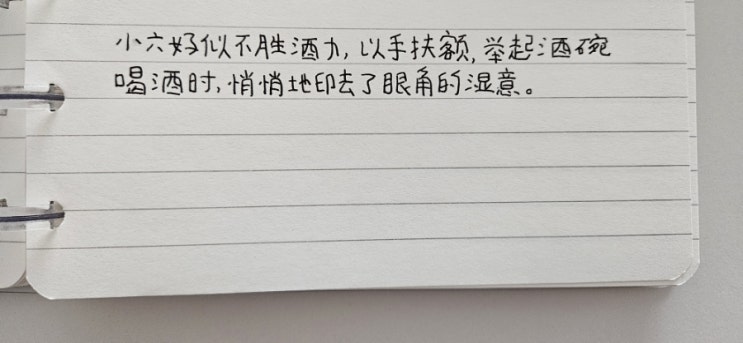 小六好似不胜酒力,以手扶额,举起酒碗
喝酒时,悄悄地印去了眼角的湿意。